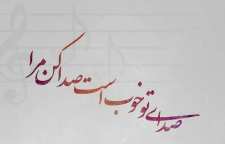 صدای تو خوب است صدا کن مرا